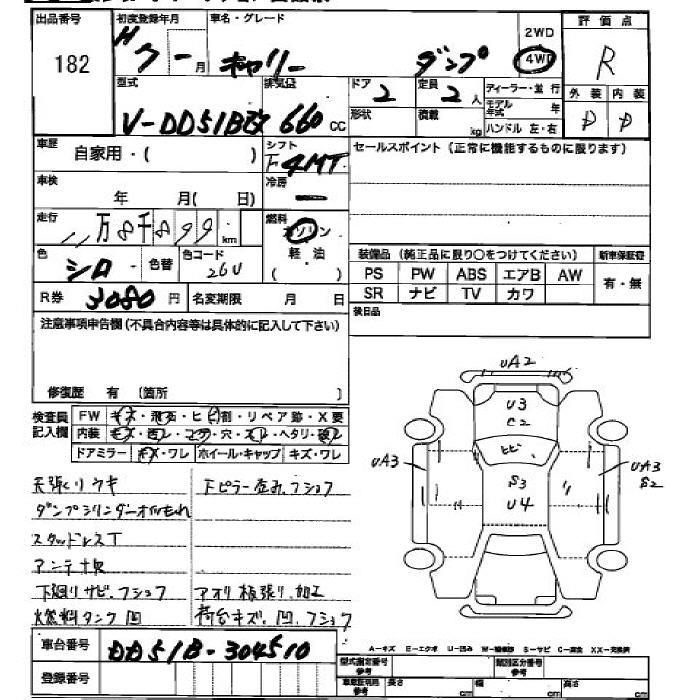 出品番号 初度登録年月 車名・グレード 2WD 評価点
182 H ケ 一 月 キャリー ダンプ 4WD R
型式 排気量 ドア 定員 ディーラー・並行 外装 内装
V-DD51B改 660 CC 2 2 人 モデル年式 年 D D
形状 積載 kg ハンドル 左・右
車歴 自家用・( ) シフト F4MT セールスポイント(正常に機能するものに限ります)
車検 年 月( 日) 冷房 ー
走行 11万8千899 km 燃料 ガソリン
軽油
色 シロ 色替 色コード 26U 装備品(純正品に限り○をつけてください) 新車保証書
PS PW ABS エアB AW 有・無
R券 3080 円 名変期限 月 日 SR ナビ TV カワ
注意事項申告欄(不具合内容等は具体的に記入して下さい) 後日品
修復歴 有 (箇所 )
検査員記入欄 FW キズ・飛石・ヒビ割・リペア跡・X要
内装 キズ・汚レ・コゲ・穴・スレ・ヘタリ・破レ
ドアミラー キズ・ワレ ホイール・キャップ キズ・ワレ
UA2
U3
C2
ヒビ
UA3
S3
U4
UA3
S2
天張リウキ 下ピラー歪み、フショク
ダンプシリンダーオイルもれ
スタッドレスT
アンテナ欠
下廻リサビ、フショク アオリ板張リ、加工
燃料タンク凹 荷台キズ、凹、フショク
車台番号 DD51B-304510
A-キズ E-エクボ U-凹み W-補修跡 S-サビ C-腐食 XX-交換済
登録番号 型式指定番号 参考 類別区分番号 参考
車庫証明用 参考 長さ cm 幅 cm 高さ cm